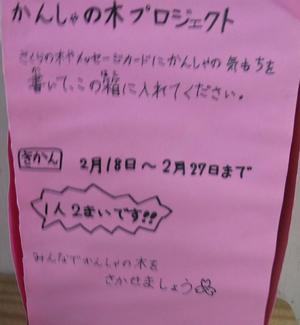 かんしゃの木プロジェクト
さくらの木やメッセージカードにかんしゃの気もちを
書いて、この箱に入れてください。
きかん 2月18日～2月27日まで
1人2まいです!!
みんなでかんしゃの木を
さかせましょう